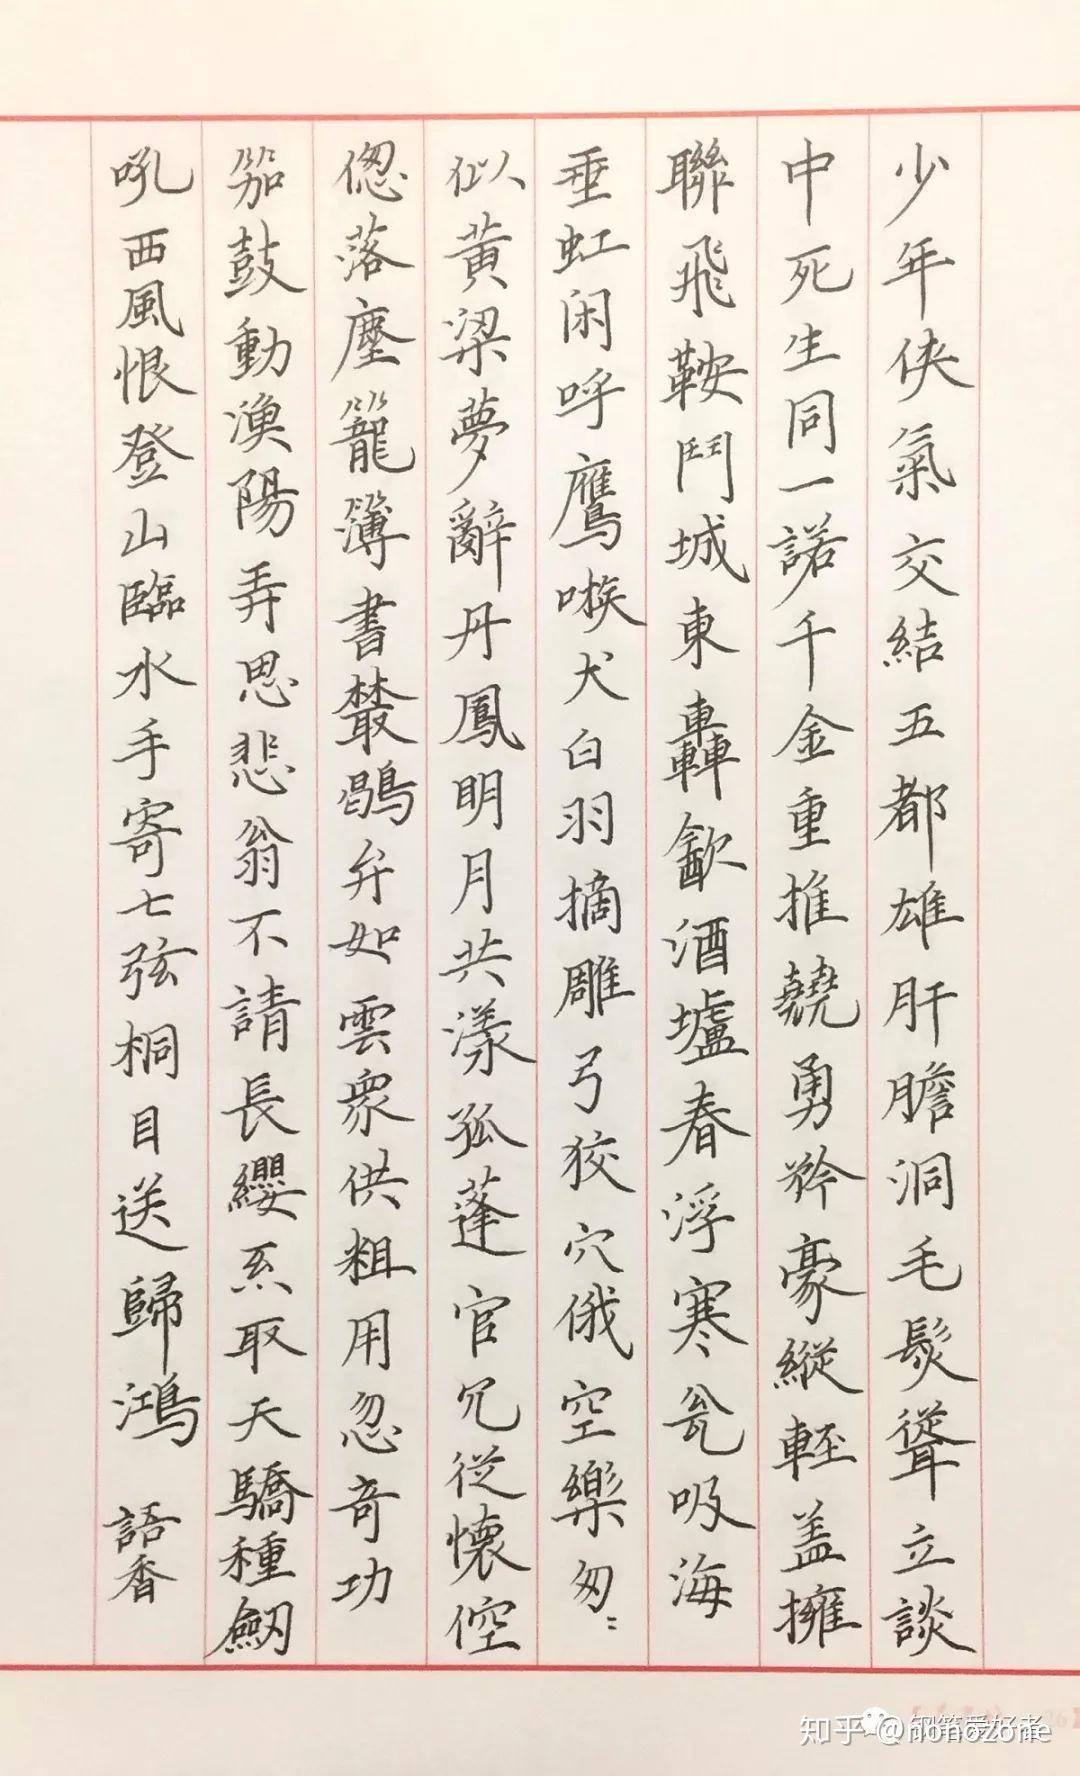 少年侠氣交結五都雄肝膽洞毛髮聳立談
中死生同一諾千金重推翹勇矜豪縱輕盖擁
聯飛鞚鬥城東轟飲酒壚春浮寒瓮吸海
垂虹闲呼鷹嗾犬白羽摘雕弓狡穴俄空樂匆〻
似黄粱夢辭丹鳳明月共漾孤蓬官冗從懷倥
偬落塵籠簿書叢鶡弁如雲衆供粗用忽奇功
笳鼓動漁陽弄思悲翁不請長纓系取天驕種劒
吼西風恨登山臨水手寄七弦桐目送歸鴻 語香
知乎 @nonozone
钢笔爱好者